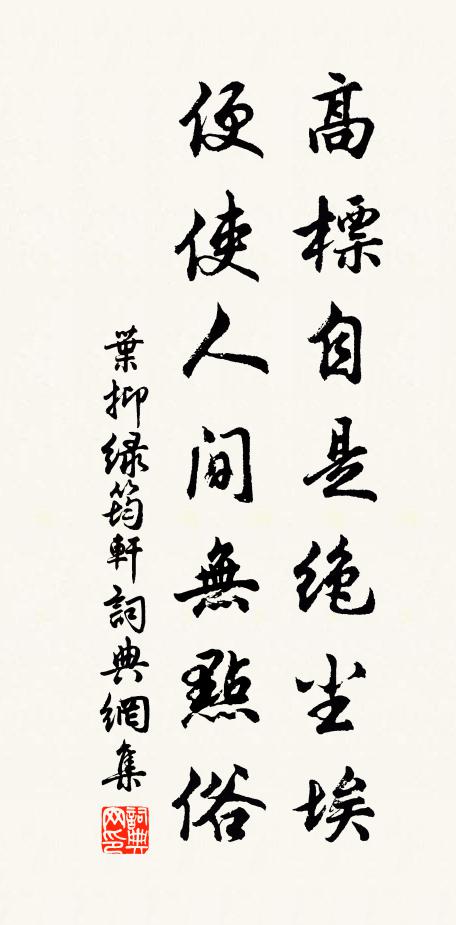 高標自是絶尘埃
便使人间無點俗
葉抑绿筠軒詞典網集
詞典网印